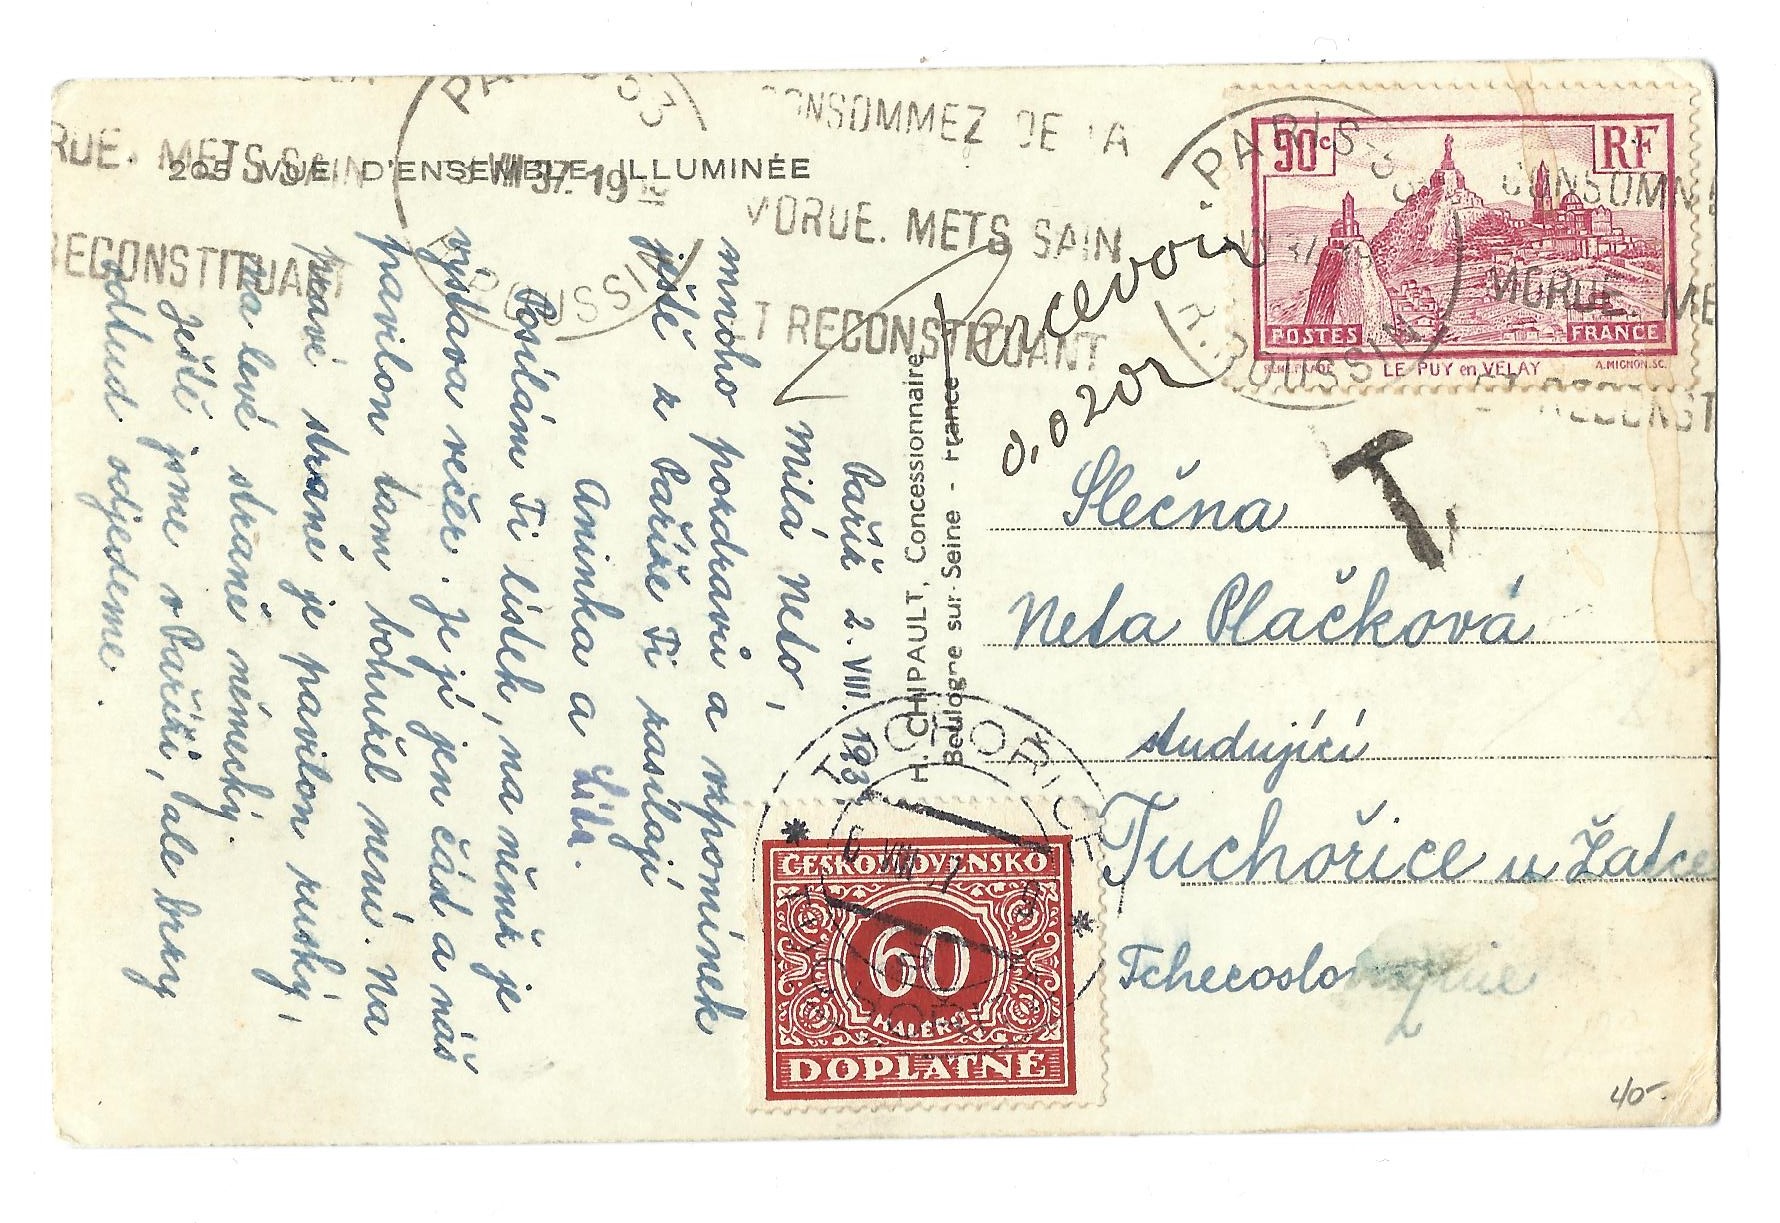 205 VUE D'ENSEMBLE ILLUMINÉE
PARIS
VIII 37. 19
R. ROUSSIN
RUE. METS SAIN
RECONSTITUANT
CONSOMMEZ DE LA
MORUE. METS SAIN
ET RECONSTITUANT
90c RF
POSTES FRANCE
LE PUY en VELAY
A. MIGNON. SC.
PARIS
CONSOMM
MORUE. ME
RECONST
Percevoir
0,020
T
Paříž 2. VIII. 193
Milá Neto,
mnoho pozdravů a vzpomínek
ještě z Paříže Ti zasílají
Aninka a Lída.
Posílám Ti lístek, na němž je
výstava večer. Je jí jen část a náš
pavilon tam bohužel není. Na
pravé straně je pavilon ruský,
na levé straně německý.
Ještě jsme v Paříži, ale brzy
odtud odjedeme.
H. CHIPAULT, Concessionnaire
Boulogne sur-Seine - France
Slečna
Neta Plačková
studující
Tuchořice u Žatce
Tchecoslo
TUCHOŘICE
6 VIII 37
ČESKOSLOVENSKO
60
HALÉŘŮ
DOPLATNÉ
40-